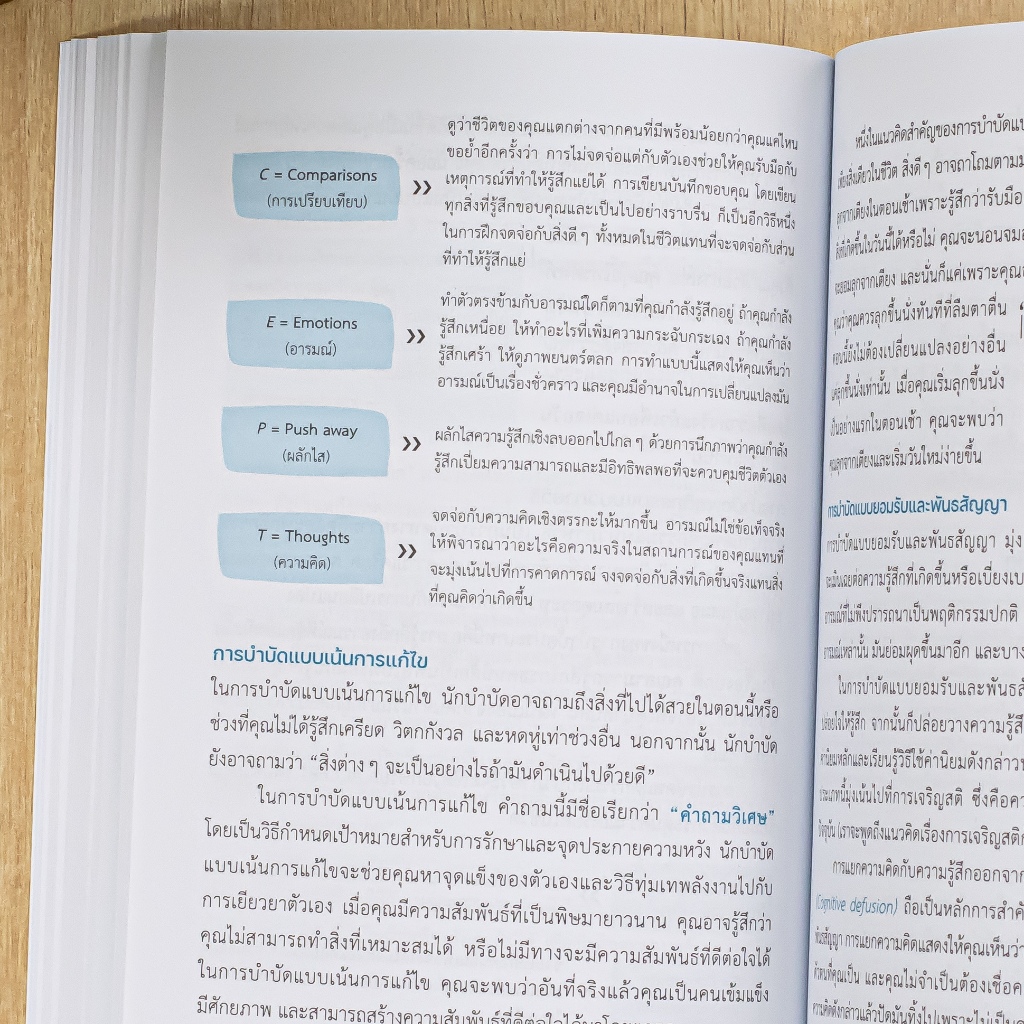 C = Comparisons
(การเปรียบเทียบ)
ดูว่าชีวิตของคุณแตกต่างจากคนที่มีพร้อมน้อยกว่าคุณแค่ไหน
ขอย้ำอีกครั้งว่า การไม่จดจ่อแต่กับตัวเองช่วยให้คุณรับมือกับ
เหตุการณ์ที่ทำให้รู้สึกแย่ได้ การเขียนบันทึกขอบคุณ โดยเขียน
ทุกสิ่งที่รู้สึกขอบคุณและเป็นไปอย่างราบรื่น ก็เป็นอีกวิธีหนึ่ง
ในการฝึกจดจ่อกับสิ่งดี ๆ ทั้งหมดในชีวิตแทนที่จะจดจ่อกับส่วน
ที่ทำให้รู้สึกแย่
E = Emotions
(อารมณ์)
ทำตัวตรงข้ามกับอารมณ์ใดก็ตามที่คุณกำลังรู้สึกอยู่ ถ้าคุณกำลัง
รู้สึกเหนื่อย ให้ทำอะไรที่เพิ่มความกระฉับกระเฉง ถ้าคุณกำลัง
รู้สึกเศร้า ให้ดูภาพยนตร์ตลก การทำแบบนี้แสดงให้คุณเห็นว่า
อารมณ์เป็นเรื่องชั่วคราว และคุณมีอำนาจในการเปลี่ยนแปลงมัน
P = Push away
(ผลักไส)
ผลักไสความรู้สึกเชิงลบออกไปไกล ๆ ด้วยการนึกภาพว่าคุณกำลัง
รู้สึกเปี่ยมความสามารถและมีอิทธิพลพอที่จะควบคุมชีวิตตัวเอง
T = Thoughts
(ความคิด)
จดจ่อกับความคิดเชิงตรรกะให้มากขึ้น อารมณ์ไม่ใช่ข้อเท็จจริง
ให้พิจารณาว่าอะไรคือความจริงในสถานการณ์ของคุณแทนที่
จะมุ่งเน้นไปที่การคาดการณ์ จงจดจ่อกับสิ่งที่เกิดขึ้นจริงแทนสิ่ง
ที่คุณคิดว่าเกิดขึ้น
การบำบัดแบบเน้นการแก้ไข
ในการบำบัดแบบเน้นการแก้ไข นักบำบัดอาจถามถึงสิ่งที่ไปได้สวยในตอนนี้หรือ
ช่วงที่คุณไม่ได้รู้สึกเครียด วิตกกังวล และหดหู่เท่าช่วงอื่น นอกจากนั้น นักบำบัด
ยังอาจถามว่า “สิ่งต่าง ๆ จะเป็นอย่างไรถ้ามันดำเนินไปด้วยดี”
ในการบำบัดแบบเน้นการแก้ไข คำถามนี้มีชื่อเรียกว่า “คำถามวิเศษ”
โดยเป็นวิธีกำหนดเป้าหมายสำหรับการรักษาและจุดประกายความหวัง นักบำบัด
แบบเน้นการแก้ไขจะช่วยคุณหาจุดแข็งของตัวเองและวิธีทุ่มเทพลังงานไปกับ
การเยียวยาตัวเอง เมื่อคุณมีความสัมพันธ์ที่เป็นพิษมายาวนาน คุณอาจรู้สึกว่า
คุณไม่สามารถทำสิ่งที่เหมาะสมได้ หรือไม่มีทางจะมีความสัมพันธ์ที่ดีต่อใจได้
ในการบำบัดแบบเน้นการแก้ไข คุณจะพบว่าอันที่จริงแล้วคุณเป็นคนเข้มแข็ง
มีศักยภาพ และสามารถสร้างความสัมพันธ์ที่ดีต่อใจได้
หนึ่งในแนวคิดสำคัญของการบำบัด
เพียงสิ่งเดียวในชีวิต สิ่งดี ๆ อาจถาโถมตามมา
ลุกจากเตียงในตอนเช้าเพราะรู้สึกว่ารับมือ
สิ่งที่เกิดขึ้นในวันนี้ได้หรือไม่ คุณจะนอนจม
จะยอมลุกจากเตียง และนั่นก็แค่เพราะคุณ
คุณว่าคุณควรลุกขึ้นนั่งทันทีที่ลืมตาตื่น
ตอนนี้ยังไม่ต้องเปลี่ยนแปลงอย่างอื่น
แค่ลุกขึ้นนั่งเท่านั้น เมื่อคุณเริ่มลุกขึ้นนั่ง
เป็นอย่างแรกในตอนเช้า คุณจะพบว่า
คุณลุกจากเตียงและเริ่มวันใหม่ง่ายขึ้น
การบำบัดแบบยอมรับและพันธสัญญา
การบำบัดแบบยอมรับและพันธสัญญา มุ่ง
จะเมินเฉยต่อความรู้สึกที่เกิดขึ้นหรือเบี่ยงเบ
อารมณ์ที่ไม่พึงปรารถนาเป็นพฤติกรรมปกติ
อารมณ์เหล่านั้น มันย่อมผุดขึ้นมาอีก และบาง
ในการบำบัดแบบยอมรับและพันธสั
ปล่อยใจให้รู้สึก จากนั้นก็ปล่อยวางความรู้สึ
ค่านิยมหลักและเรียนรู้วิธีใช้ค่านิยมดังกล่าว
ประเภทนี้มุ่งเน้นไปที่การเจริญสติ ซึ่งคือคว
ปัจจุบัน (เราจะพูดถึงแนวคิดเรื่องการเจริญสติ
การแยกความคิดกับความรู้สึกออกจาก
(Cognitive defusion) ถือเป็นหลักการสำคั
พันธสัญญา การแยกความคิดแสดงให้คุณเห็นว่า
ตัวตนที่คุณเป็น และคุณไม่จำเป็นต้องเชื่อ
ความคิดดังกล่าวแล้วปัดมันทิ้งไปเพราะไม่เป็น